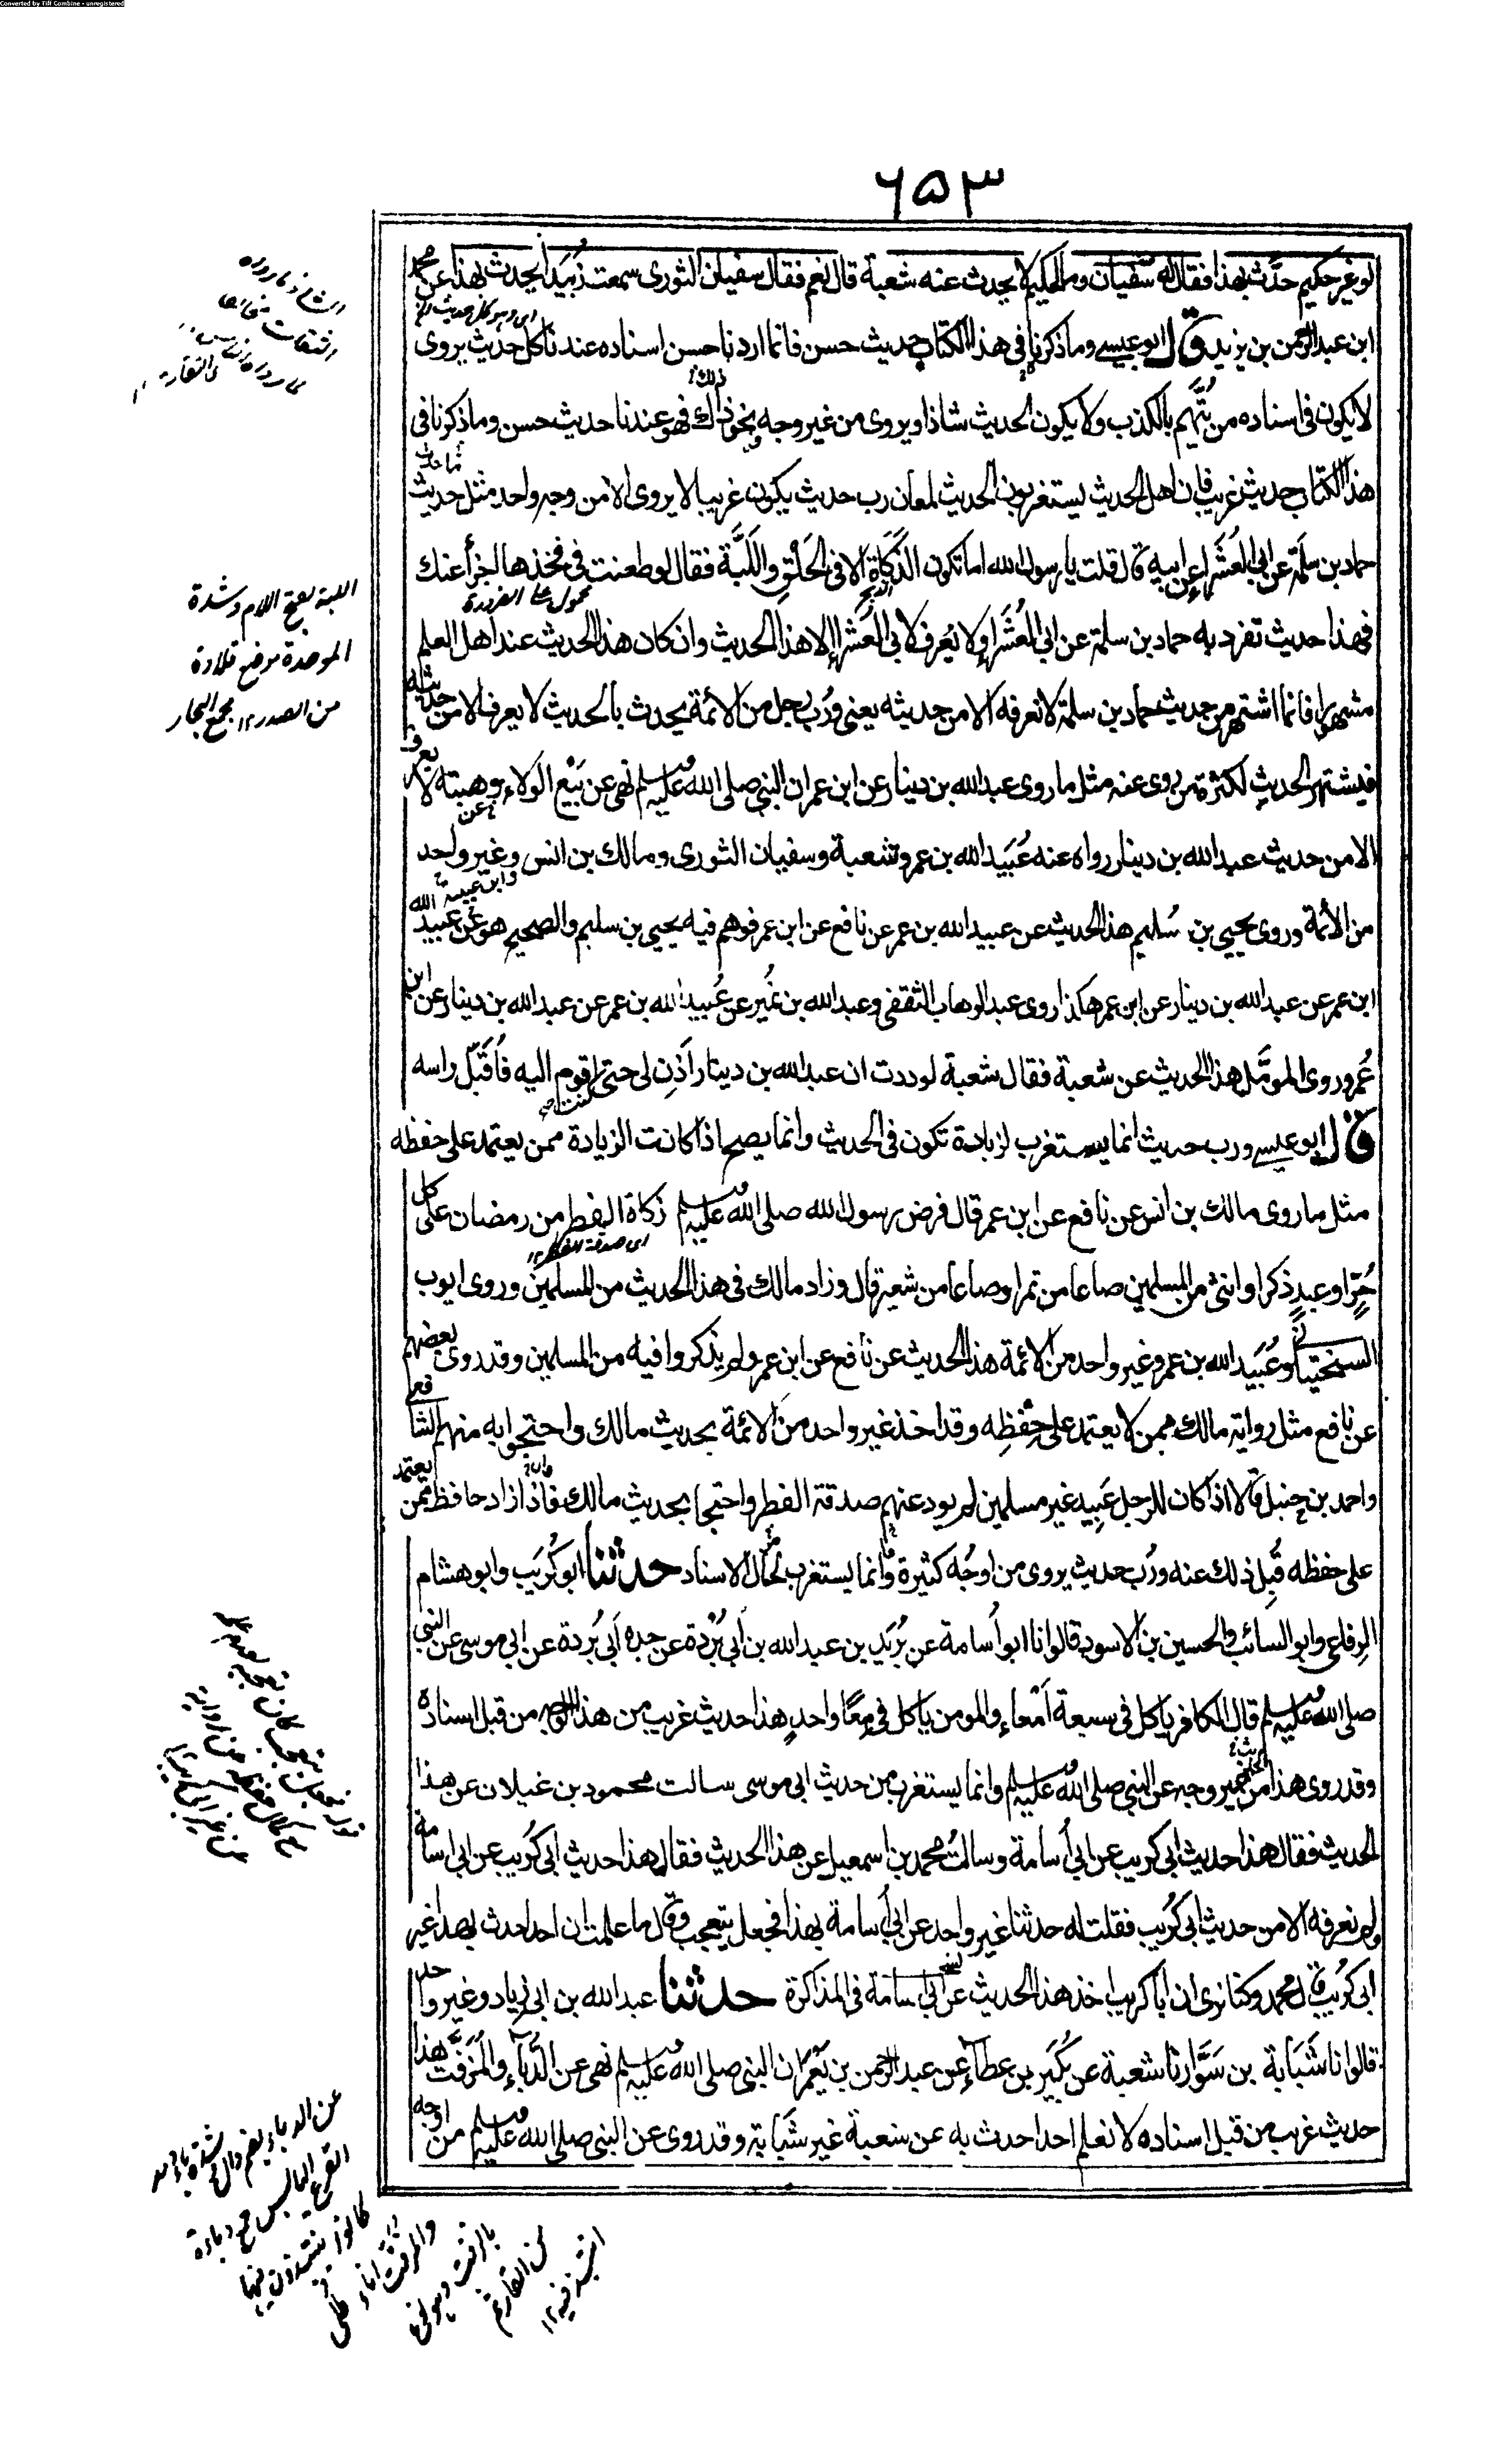 Converted by Tiff Combine - unregistered
۶۵۳
لو غير حكيم حدَّث بهذا فقال له سفيان وما لحكيم لا يحدث عنه شعبة قال نعم فقال سفيان الثوري سمعت زُبَيدًا يحدث بهذا عن محمد
ابن عبد الرحمن بن يزيد قال ابو عيسى وما ذكرنا في هذا الكتاب حديث حسن فانما اردنا حسن اسناده عندنا كل حديث يروى
لا يكون في اسناده من يُتَّهم بالكذب ولا يكون الحديث شاذا ويروى من غير وجه نحو ذاك فهو عندنا حديث حسن وما ذكرنا في
هذا الكتاب حديث غريب فان اهل الحديث يستغربون الحديث لمعان رب حديث يكون غريبا لا يروى الا من وجه واحد مثل حديث
حماد بن سلمة عن ابي العُشَراء عن ابيه قال قلت يا رسول الله اما تكون الذَّكَاة الا في الحَلْقِ واللَّبَّة فقال لو طعنت في فخذها لجزأ عنك
فهذا حديث تفرد به حماد بن سلمة عن ابي العُشَراء ولا يُعرف لابي العُشَراء الا هذا الحديث وان كان هذا الحديث عند اهل العلم
مشهورا فانما اشتهر من حديث حماد بن سلمة لا نعرفه الا من حديثه يعني ورُب رجل من الائمة يحدث بالحديث لا يعرف الا من حديثه
فيشتهر الحديث لكثرة من روى عنه مثل ما روى عبد الله بن دينار عن ابن عمر ان النبي صلى الله عليه وسلم نهى عن بَيْع الولاء وهبته لا يعرف
الا من حديث عبد الله بن دينار رواه عنه عُبَيد الله بن عمر وشعبة وسفيان الثوري ومالك بن انس وغير واحد
وابن عيينة
من الأئمة وروى يحيى بن سُليم هذا الحديث عن عبيد الله بن عمر عن نافع عن ابن عمر فوهم فيه يحيى بن سليم والصحيح هو عن عبيد الله
ابن عمر عن عبد الله بن دينار عن ابن عمر هكذا روى عبد الوهاب الثقفي وعبد الله بن نُمير عن عُبيد الله بن عمر عن عبد الله بن دينار عن ابن
عُمر وروى المؤمَّل هذا الحديث عن شعبة فقال شعبة لوددت ان عبد الله بن دينار اَذِن لي حتى اقوم اليه فاُقَبِّل راسه
قال ابو عيسى ورب حديث انما يستغرب لزيادة تكون في الحديث وانما يصح اذا كانت الزيادة ممن يعتمد على حفظه
مثل ما روى مالك بن انس عن نافع عن ابن عمر قال فرض رسول الله صلى الله عليه وسلم زكاة الفطر من رمضان على كل
اى صدقة الفطر ١٢
حُرٍّ او عبدٍ ذكر او انثى من المسلمين صاعا من تمر او صاعا من شعير قال وزاد مالك في هذا الحديث من المسلمين وروى ايوب
السختياني وعُبَيد الله بن عمر وغير واحد من الائمة هذا الحديث عن نافع عن ابن عمر ولم يذكروا فيه من المسلمين وقد روى بعضهم
عن نافع مثل رواية مالك ممن لا يعتمد على حِفظِه وقد اخذ غير واحد من الائمة بحديث مالك واحتجوا به منهم الشافعي
واحمد بن حنبل قالا اذا كان للرجل عَبيد غير مسلمين لم يود عنهم صدقة الفطر واحتجا بحديث مالك فاذا زاد حافظ ممن يعتمد
على حفظه قُبِل ذلك عنه ورُب حديث يروى من اوجُه كثيرة وانما يستغرب لحال الاسناد حدثنا ابو كُرَيب وابو هشام
الرِفاعي وابو السائب والحسين بن الاسود قالوا نا ابو اُسامة عن بُرَيد بن عبد الله بن اَبي بُرْدة عن جده اَبي بُردة عن ابي موسى عن النبي
صلى الله عليه وسلم قال الكافر ياكل في سبعة اَمْعاء والمومن ياكل في مِعًا واحدٍ هذا حديث غريب من هذا الوجه من قبل اسناده
وقد روى هذا من غير وجه عن النبي صلى الله عليه وسلم وانما يستغرب من حديث ابي موسى سالت محمود بن غيلان عن هذا
الحديث فقال هذا حديث ابي كريب عن ابي اُسامة وسالتُ محمد بن اسمعيل عن هذا الحديث فقال هذا حديث ابي كُريب عن ابي اسامة
ولم نعرفه الا من حديث ابي كُريب فقلت له حدثنا غير واحد عن ابي اُسامة بهذا فجعل يتعجب وقال ما علمت ان احدا حدث بهذا غير
ابي كُريب قال محمد وكنا نرى ان ابا كريب اخذ هذا الحديث عن ابي اسامة في المذاكرة حدثنا عبد الله بن ابي زياد وغير واحد
قالوا نا شَبَابة بن سَوَّار نا شعبة عن بُكَير بن عطاء عن عبد الرحمن بن يَعْمَر ان النبي صلى الله عليه وسلم نهى عن الدُّبَّاء والمُزَفَّت هذا
حديث غريب من قبل اسناده لا نعلم احدا حدث به عن شعبة غير شَبَابة وقد روى عن النبي صلى الله عليه وسلم من اوجه
اللبة بفتح اللام وشدة
الموحدة موضع قلادة
من الصدر ١٢ مجمع البحار
محمول على الضرورة
القرع اليابس
كانوا ينتبذون فيها